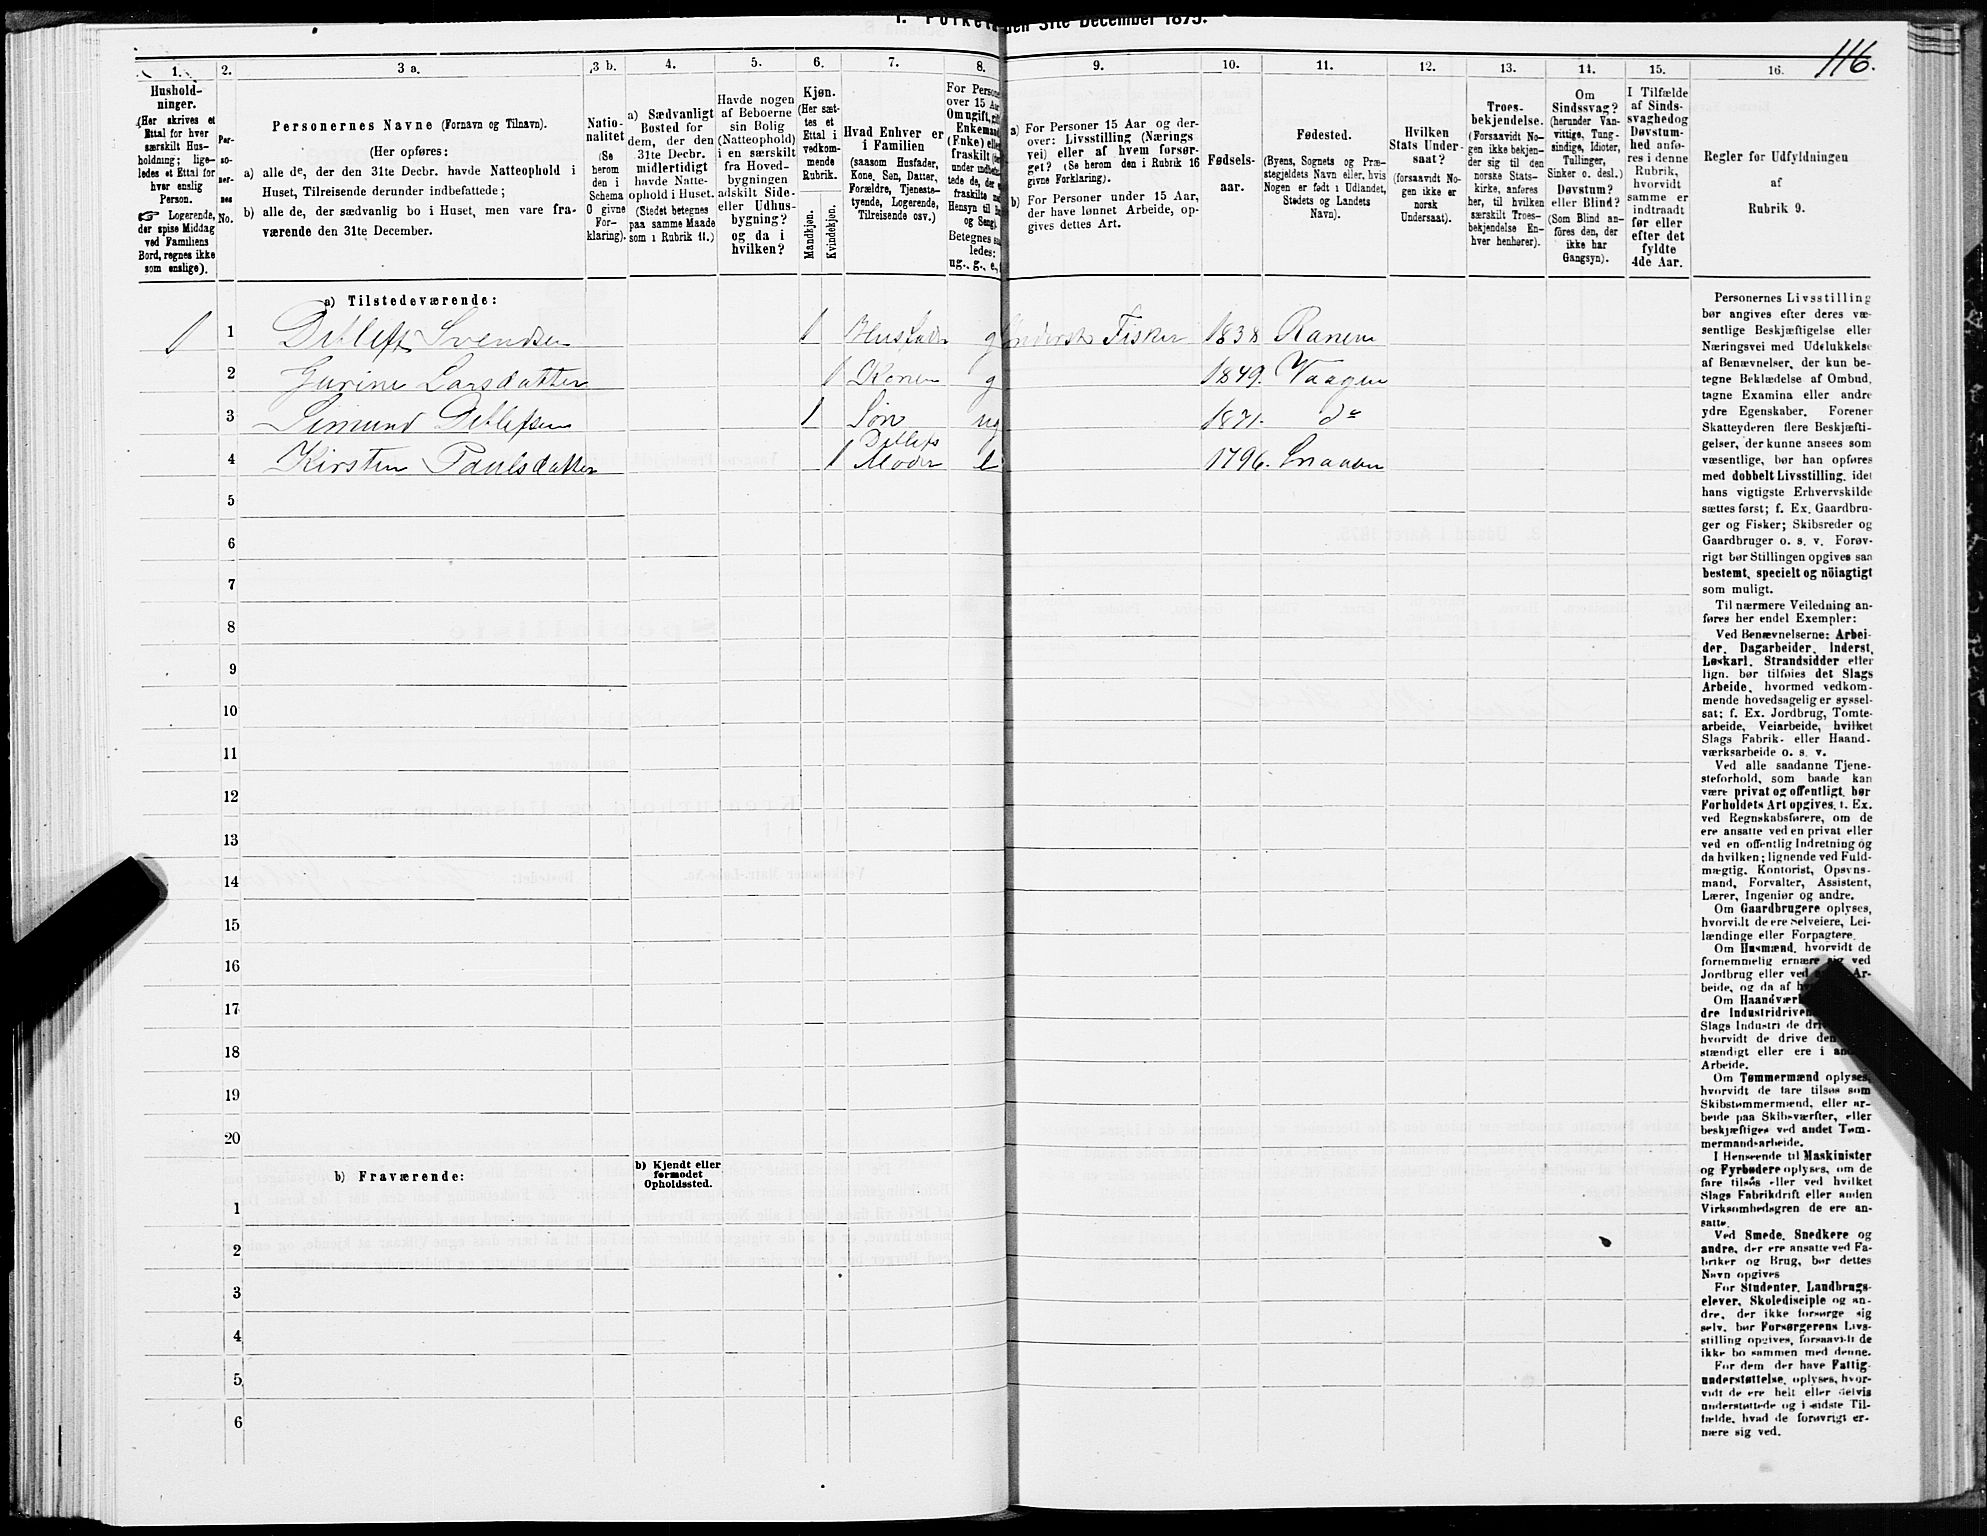 1. Folketæ den 31te December 1875.
116.
1.
2.
3 a.
3 b.
4.
5.
6.
7.
8.
9.
10.
11.
12.
13.
14.
15.
16.
Hushold-
ninger.
(Her skrives et
Ettal for hver
særskilt Hus-
holdning; lige-
ledes et Ettal for
hver enslig
Person.
☞ Logerende,
der spise Middag
ved Familiens
Bord, regnes ikke
som enslige).
Per-
so-
ner-
nes
No.
Personernes Navne (Fornavn og Tilnavn).
(Her opføres:
a) alle de, der den 31te Decbr. havde Natteophold i
Huset, Tilreisende derunder indbefattede;
b) alle de, der sædvanlig bo i Huset, men vare fra-
værende den 31te December.
Natio-
nalitet
(Se
herom
den i
Schema
O givne
For-
klaring).
a) Sædvanligt
Bosted for
dem, der den
31te Decbr.
midlertidigt
havde Natte-
ophold i Huset.
(Stedet betegnes
paa samme Maade
som i Rubrik 11.)
Havde nogen
af Beboerne
sin Bolig
(Natteophold)
i en særskilt
fra Hoved-
bygningen
adskilt Side-
eller Udhus-
bygning?
og da i
hvilken?
Kjøn.
(Her sæt-
tes et
Ettal i
vedkom-
mende
Rubrik.
Mandkjøn.
Kvindekjøn.
Hvad Enhver er
i Familien
(saasom Husfader,
Kone, Søn, Datter,
Forældre, Tjeneste-
tyende, Logerende,
Tilreisende osv.)
For Persone
over 15 Aar
Om ugift, gift
Enkemand
(Enke) elle
fraskilt
Betegnes saa
ledes:
ug., g., e.,
a) For Personer 15 Aar og der-
over: Livsstilling (Nærings
vei) eller af hvem forsør-
get? (Se herom den i Rubrik 16
givne Forklaring).
b) For Personer under 15 Aar,
der have lønnet Arbeide, op-
gives dettes Art.
Fødsels-
aar.
Fødested.
(Byens, Sognets og Præ-
stegjeldets Navn eller, hvis
Nogen er født i Udlandet,
Stedets og Landets
Navn).
Hvilken
Stats Under-
saat?
(forsaavidt No-
gen ikke er
norsk
Undersaat).
Troes-
bekjendelse.
(Forsaavidt No-
gen ikke bekjen-
der sig til den
norske Stats-
kirke, anføres
her, til hvilken
særskilt Troes-
bekjendelse En-
hver henhører).
Om
Sindssvag?
(herunder Van-
vittige, Tung-
sindige, Idioter,
Tullinger,
Sinker o. desl.)
Døvstum?
eller Blind?
(Som Blind an-
føres den, der
ikke har
Gangsyn).
I Tilfælde
af Sinds-
svaghedog
Døvstum-
hed anfø-
res i denne
Rubrik,
hvorvidt
samme er
indtraadt
før eller
efter det
fyldte
4de Aar.
Regler for Udfyldningen
af
Rubrik 9.
a) Tilstedeværende:
1 1 Detlef Svendsen 1 Husfader g Inderst Fisker 1838 Ranen
2 Gurine Larsdatter 1 Kone g 1849. Vaagen
3 Simund Detlefsen 1 Søn ug 1871. do
4 Kirsten Paulsdatter 1 Detlefs Moder e 1796. Snaasen
5
6
7
8
9
10
11
12
13
14
15
16
17
18
19
20
b) Fraværende:
b) Kjendt eller
formodet
Opholdssted.
1
2
3
4
5
6
Personernes Livsstilling
bør angives efter deres væ-
sentlige Beskjæftigelse eller
Næringsvei med Udelukkelse
af Benævnelser, der kun be-
tegne Beklædelse af Ombud,
tagne Examina eller andre
ydre Egenskaber. Forener
Skatteyderen flere Beskjæfti-
gelser, der kunne ansees som
væsentlige, bør han opføres
med dobbelt Livsstilling, idet
hans vigtigste Erhvervskilde
sættes først; f. Ex. Gaardbru-
ger og Fisker; Skibsreder og
Gaardbruger o. s. v. Forøv-
rigt bør Stillingen opgives saa
bestemt, specielt og nöiagtigt
som muligt.
Til nærmere Veiledning an-
føres her endel Exempler:
Ved Benævnelserne: Arbei-
der, Dagarbeider, Inderst,
Løskarl, Strandsidder eller
lign. bør tilføies det Slags
Arbeide, hvormed vedkom-
mende hovedsagelig er syssel-
sat; f. Ex. Jordbrug, Tomte-
arbeide, Veiarbeide, hvilket
Slags Fabrik- eller Haand-
værksarbeide o. s. v.
Ved alle saadanne Tjene-
steforhold, som baade kan
være privat og offentligt, bør
Forholdets Art opgives, t. Ex.
ved Regnskabsførere, om de
ere ansatte ved en privat eller
ved en offentlig Indretning og
da hvilken; lignende ved Fuld-
mægtig, Kontorist, Opsyns-
mand, Forvalter, Assistent,
Lærer, Ingeniør og andre.
Om Gaardbrugere oplyses,
hvorvidt de ere Selveiere, Lei-
lændinge eller Forpagtere.
Om Husmænd, hvorvidt de
fornemmelig ernære sig ved
Jordbrug eller ved Ar-
beide, og da af
Om Haandværk
dre Industridriven
Slags Industri de dri
hvorvidt de drive den
stændigt eller ere i an
Arbeide.
Om Tømmermænd oplyses,
hvorvidt de fare tilsøs som
Skibstømmermænd, eller ar-
beide paa Skibsværfter, eller
beskjæftiges ved andet Tøm-
mermandsarbeide.
I Henseende til Maskinister
og Fyrbødere oplyses, om de
fare tilsøs eller ved hvilket
Slags Fabrikdrift eller anden
Virksomhedsgren de ere an-
satte.
Ved Smede, Snedkere og
andre, der ere ansatte ved Fa-
briker og Brug, bør dettes
Navn opgives
For Studenter, Landbrugs-
elever, Skoledisciple og an-
dre, der ikke forsørge sig
selv, bør Forsørgerens Livs-
stilling opgives, forsaavidt de
ikke bo sammen med denne.
For dem der have Fattig-
understøttelse, oplyses, hvor-
vidt de ere helt eller delvis
understøttede og i sidste Til-
fælde, hvad de forøvrigt er-
nære sig ved.